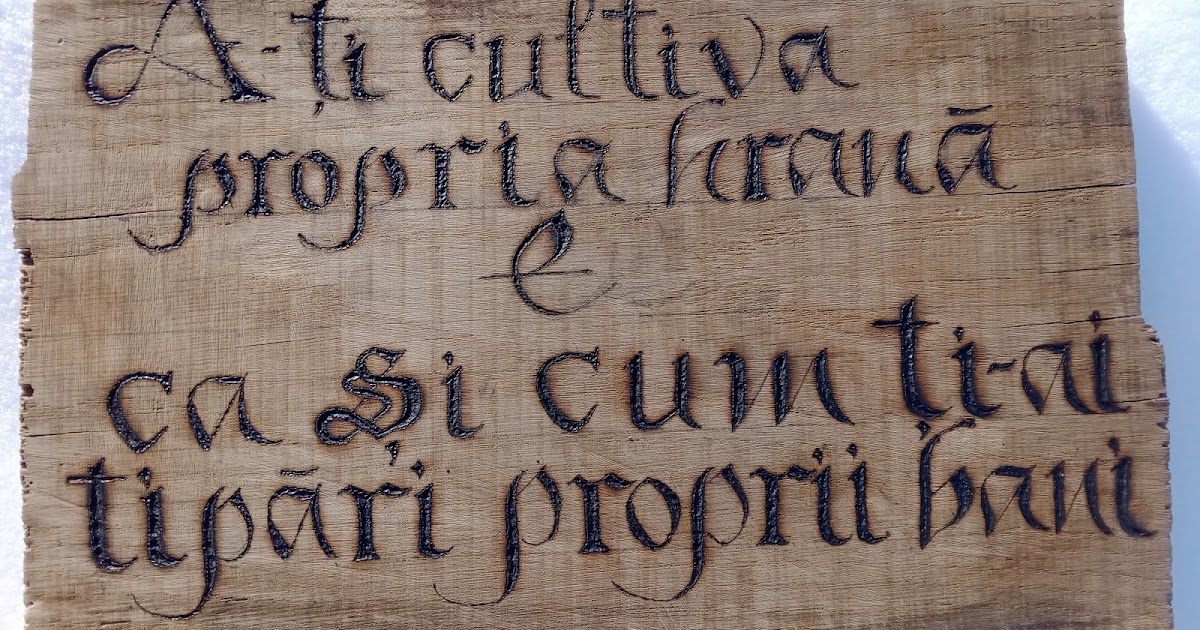 A-ți cultiva
propria hrană
e
ca și cum ți-ai
tipări proprii bani